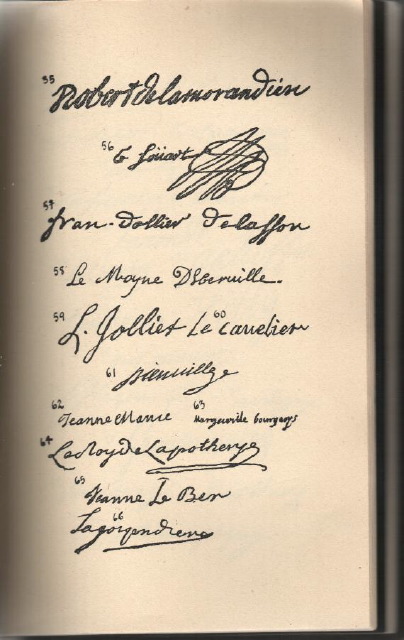 55 Robert de lamorandiere
56 G Soüart
57 fran. Dollier Decasson
58 Le Moyne Diberuille.
59 L. Jolliet 60 Le caualier
61 Bienuille
62 Jeanne Mance 63 Margueritte bourgeoys
64 Le Roy de Lapotherye
65 Jeanne Le Ber
66 Lagorgendiere